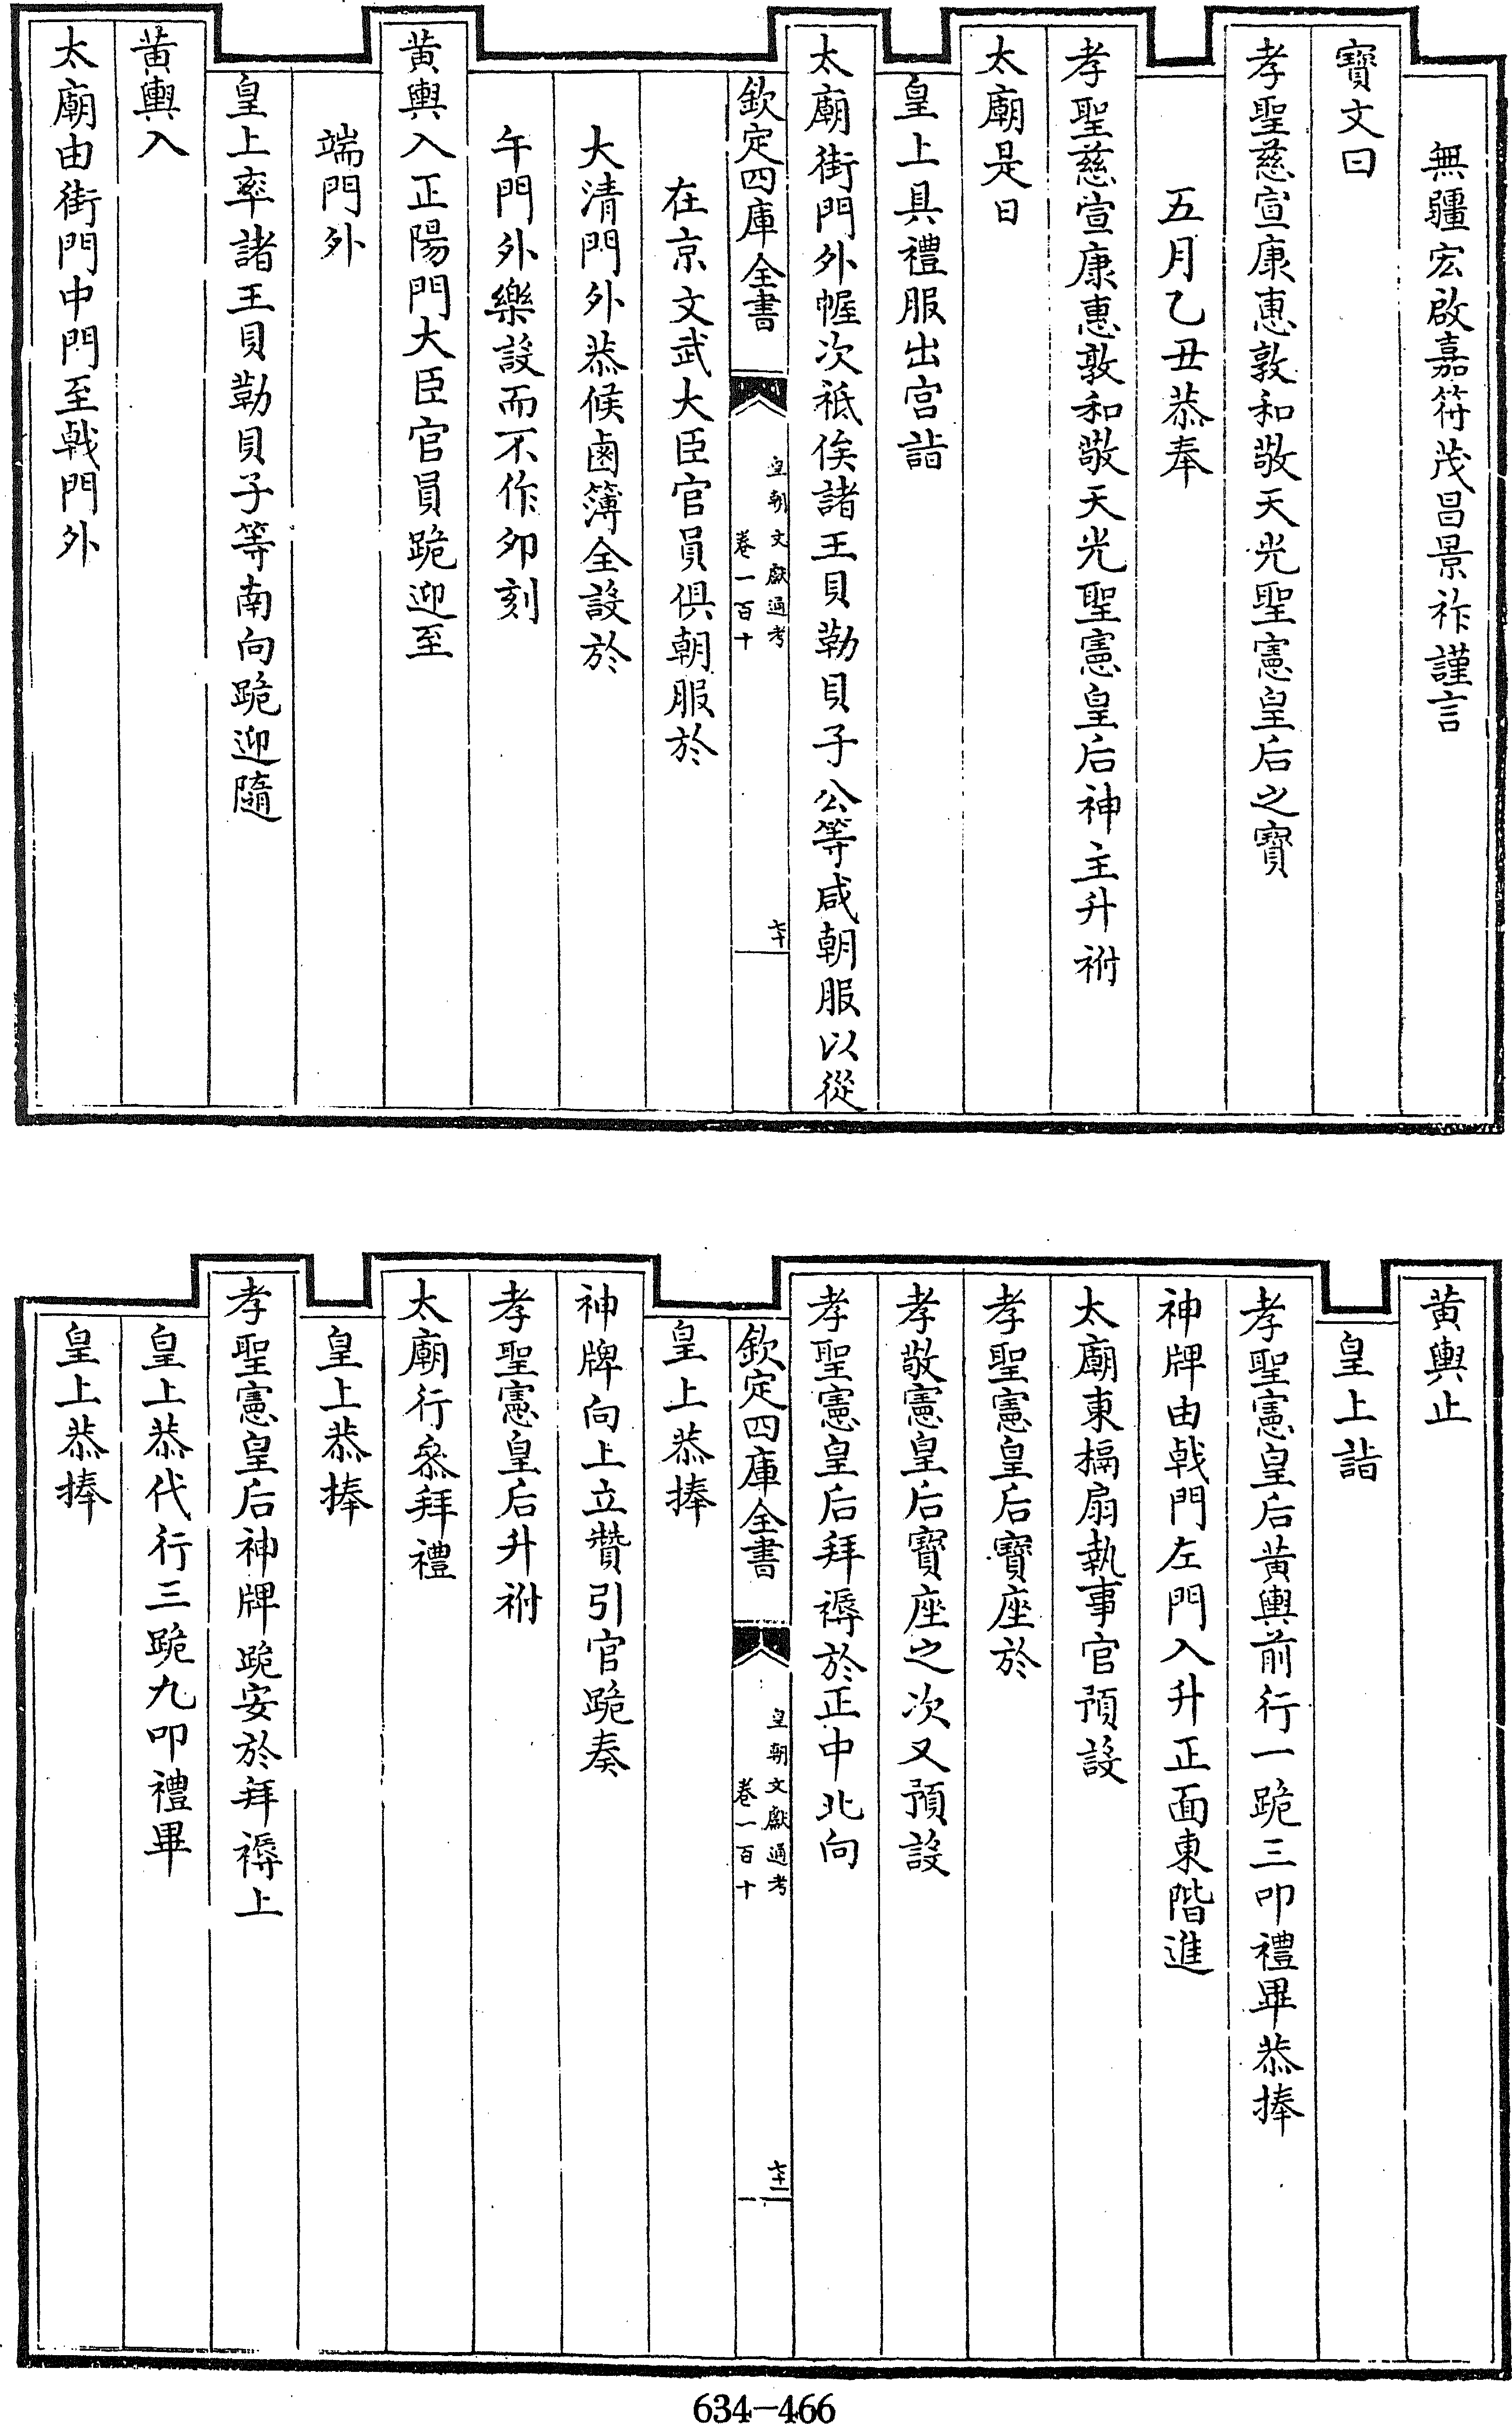 無疆宏啟嘉符茂昌景祚謹言
寶文曰
孝聖慈宣康惠敦和敬天光聖憲皇后之寶
五月乙丑恭奉
孝聖慈宣康惠敦和敬天光聖憲皇后神主升祔
太廟是日
皇上具禮服出宫詣
太廟街門外幄次祗俟諸王貝勒貝子公等咸朝服以從
欽定四庫全書
皇朝文獻通考
卷一百十
六十
在京文武大臣官員俱朝服於
大清門外恭候鹵簿全設於
午門外樂設而不作卯刻
黄輿入正陽門大臣官員跪迎至
端門外
皇上率諸王貝勒貝子等南向跪迎隨
黄輿入
太廟由街門中門至戟門外
黄輿止
皇上詣
孝聖憲皇后黄輿前行一跪三叩禮畢恭捧
神牌由戟門左門入升正面東階進
太廟東槅扇執事官預設
孝聖憲皇后寶座於
孝敬憲皇后寶座之次又預設
孝聖憲皇后拜褥於正中北向
欽定四庫全書
皇朝文獻通考
卷一百十
皇上恭捧
神牌向上立贊引官跪奏
孝聖憲皇后升祔
太廟行叅拜禮
皇上恭捧
孝聖憲皇后神牌跪安於拜褥上
皇上恭代行三跪九叩禮畢
皇上恭捧
634-466